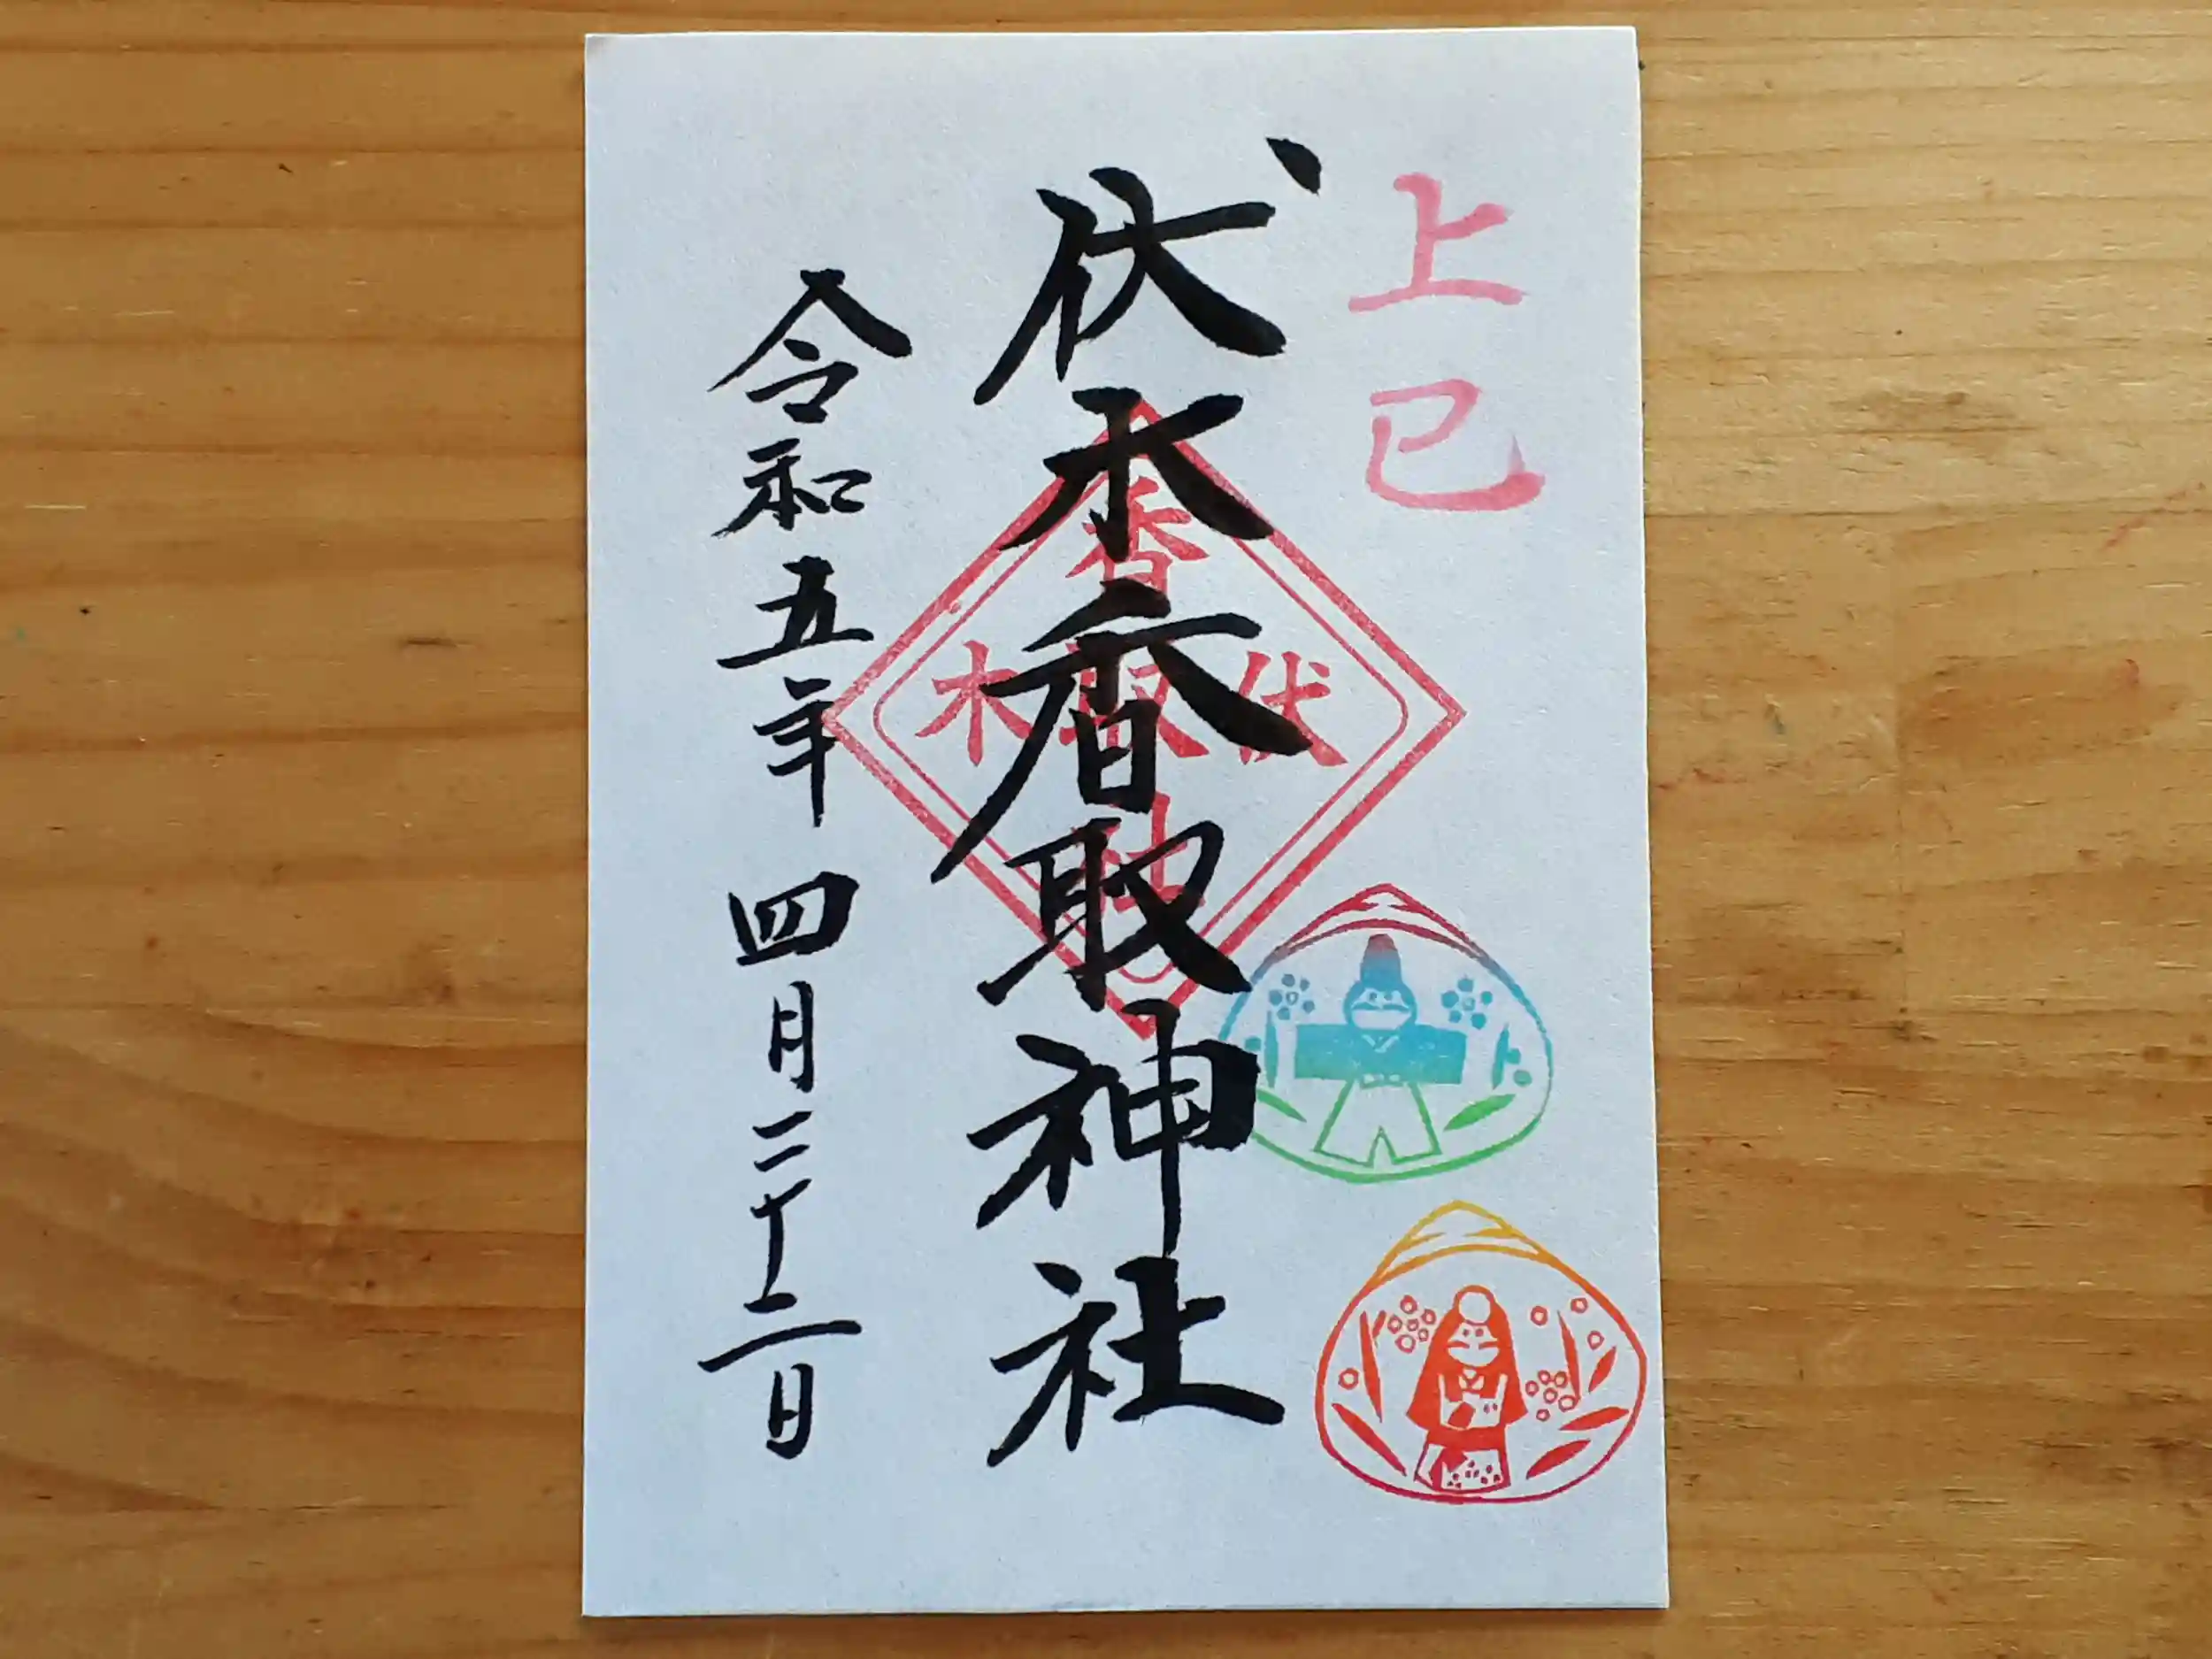 上巳
伏木香取神社
伏木
香取社
令和五年四月二十二日